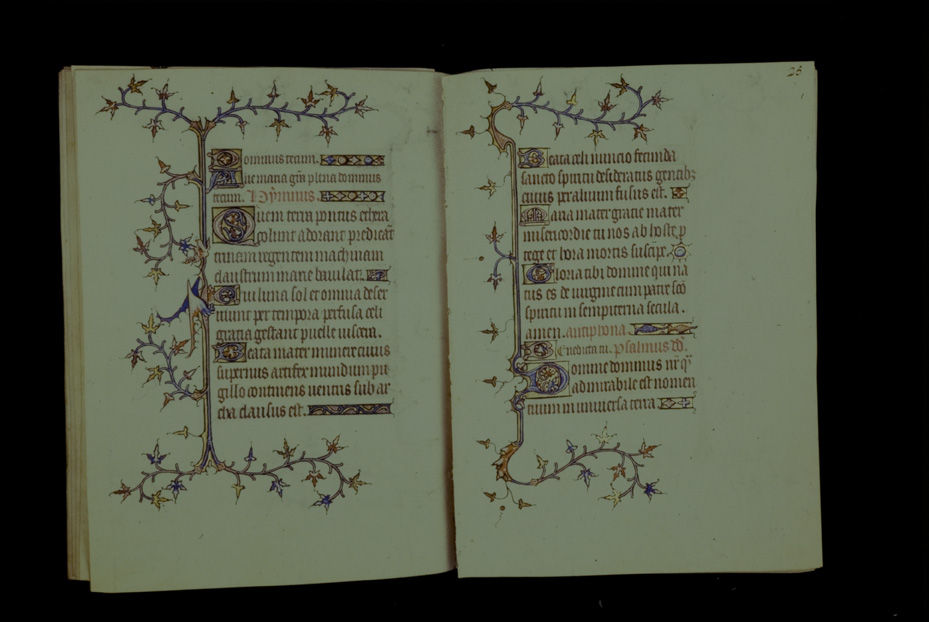 Dominus tecum.
Aue maria grã plena dominus
tecum. Hÿmnus.
Quem terra pontus ethera
colunt adorant predicãt
trinam regentem machinam
claustrum marie baiulat.
Cui luna sol et omnia deser
uiunt per tempora perfusa celi
gracia gestant puelle uiscera.
Beata mater munere cuius
supernus artifex mundum pu
gillo continens uentris sub ar
cha clausus est.
25
Beata celi nuncio fecunda
sancto spiritu desideratus gentibꝫ
cuius per aluum fusus est.
Maria mater gracie mater
misericordie tu nos ab hoste p
tege et hora mortis suscipe.
Gloria tibi domine qui na
tus es de uirgine cum patre sc̃o
spiritu in sempiterna secula.
amen. antiphona.
Benedicta tu. psalmus dd̃.
Domine dominus nr̃ q̃
admirabile est nomen
tuum in uniuersa terra.